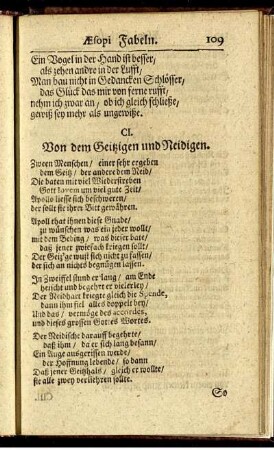 Æsopi Fabeln. 109
Ein Vogel in der Hand ist besser,
als zehen andre in der Lufft,
Man bau nicht in Gedancken Schlösser,
das Glück das mir von ferne rufft,
nehm ich zwar an / ob ich gleich schließe,
gewiß sey mehr als ungewiße.
CI.
Von dem Geitzigen und Neidigen.
Zween Menschen / einer sehr ergeben
dem Geitz / der andere dem Neid /
Die baten mit viel Wiederstreben
Gott um viel gute Zeit /
Apollo liesse sich beschweren /
der sollt sie ihrer Bitt gewähren.
Apoll that ihnen diese Gnade /
zu wünschen was ein jeder wollt /
mit dem Beding / was dieser bate /
daß jener zwiefach kriegen sollt.
Der Geitz'ge wust sich nicht zu fassen /
der sich an nichts begnügen lassen.
In Zweiffel stund er lang / am Ende
bericht und begehrt er vielerley /
Der Neidhart kriegte gleich die Spende,
dann ihm fiel alles doppelt bey /
Und das / vermöge des accordes,
und dieses grossen Gottes Wortes.
Der Neidische darauff begehrte /
daß ihm / da er sich lang besann /
Ein Auge ausgerissen werde /
der Hoffnung lebende / so dann
Daß jener Geitzhals / gleich er wollte /
sie alle zwey verliehren sollte.
So